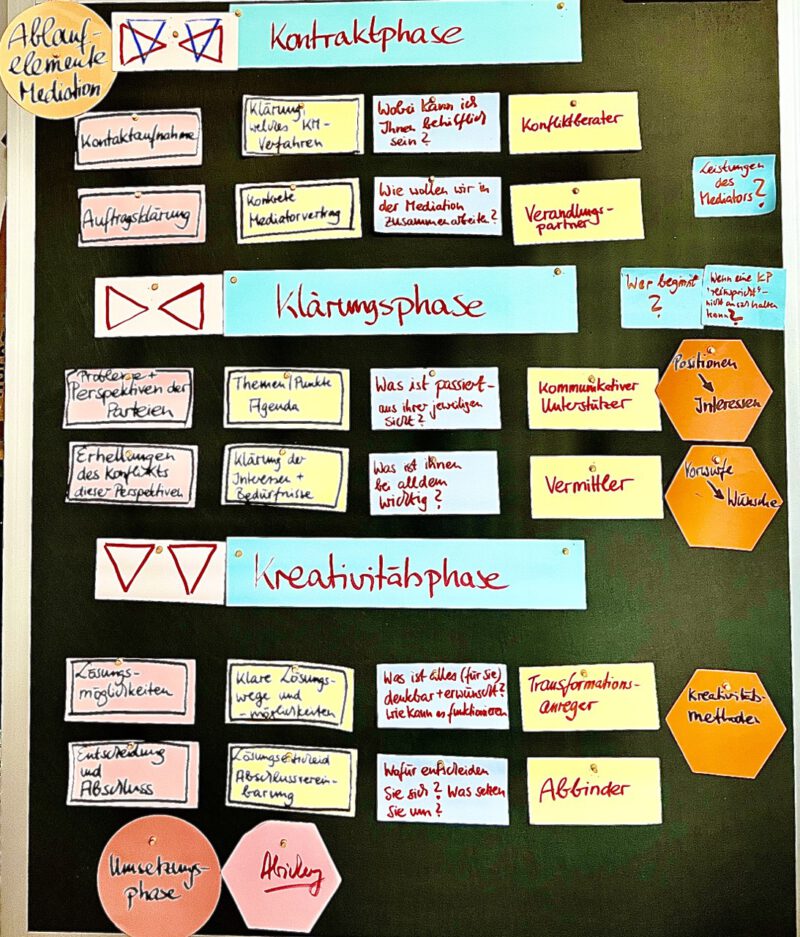 Ablauf-
elemente
Mediation
Kontraktphase
Kontaktaufnahme
Klärung,
welches KM-
Verfahren
Wobei kann ich
Ihnen behilflich
sein?
Konfliktberater
Auftragsklärung
Konkrete
Mediatorvertrag
Wie wollen wir in
der Mediation
zusammenarbeiten?
Verandlungs-
partner
Leistungen
des
Mediators?
Klärungsphase
Wer beginnt
?
Wenn eine KP
kann?
Probleme +
Perspektiven der
Parteien
Themen/Punkte
Agenda
Was ist passiert -
aus ihrer jeweiligen
Sicht?
Kommunikativer
Unterstützer
Positionen
Interessen
Erhellungen
des Konflikts
dieser Perspektiven
Klärung der
Interessen +
Bedürfnisse
Was ist ihnen
bei alldem
wichtig?
Vermittler
Vorwürfe
Wünsche
Kreativitätsphase
Lösungs-
möglichkeiten
Klare Lösungs-
wege und
-möglichkeiten
Was ist alles (für Sie)
denkbar + erwünscht?
Wie kann es funktionieren
Transformations-
anreger
Kreativitäts-
methoden
Entscheidung
und
Abschluss
Lösungsentscheid
Abschlussverein-
barung
Wofür entscheiden
Sie sich? Was setzen
Sie um?
Abbinder
Umsetzungs-
phase